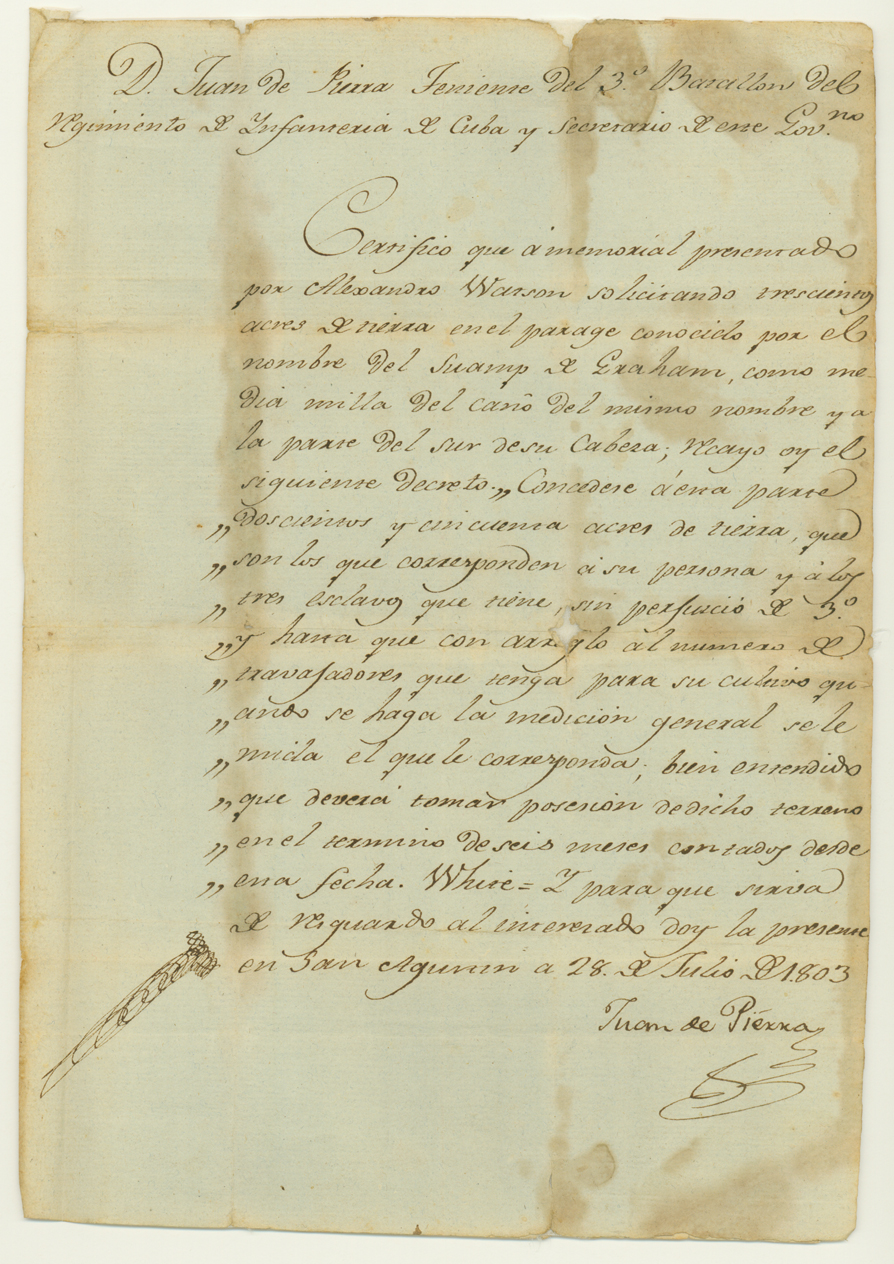 D. Juan de Pierra Teniente del 3.º Batallon del
Regimiento de Infanteria de Cuba y Secretario de este Gov.no
Certifico que á memorial presentado
por Alexandro Watson solicitando trescientos
acres de tierra en el parage conocido por el
nombre del Suamp de Graham, como me-
dia milla del caño del mismo nombre y a
la parte del sur de su Cabeza; recayo oy el
siguiente decreto. „ Concedese á esta parte
„ doscientos y cincuenta acres de tierra, que
„ son los que corresponden á su persona y á los
„ tres esclavos que tiene, sin perjuicio de 3.º
„ y hasta que con arreglo al numero de
„ travajadores que tenga para su cultivo qu-
„ ando se haga la medición general se le
„ mida el que le corresponda; bien entendido
„ que deverá tomar posesión de dicho terreno
„ en el termino de seis meses contados desde
„ esta fecha. White = Y para que sirva
de resguardo al interesado doy la presente
en San Agustin a 28. de Julio de 1803
Juan de Pierra